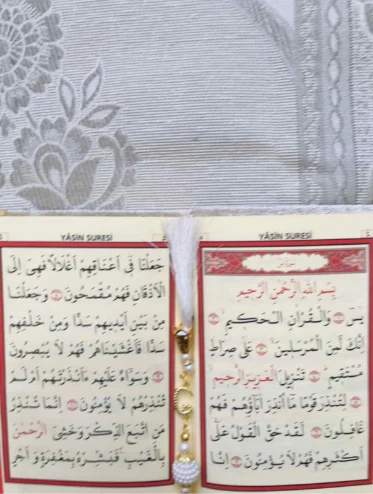 YÂSİN SURESİ
بِسْمِ اللهِ الرَّحْمٰنِ الرَّحِيمِ
يٰسٓ وَالْقُرْاٰنِ الْحَكِيمِ
اِنَّكَ لَمِنَ الْمُرْسَلِينَ عَلٰى صِرَاطٍ
مُسْتَقِيمٍ تَنْزِيلَ الْعَزِيزِ الرَّحِيمِ
لِتُنْذِرَ قَوْمًا مَٓا اُنْذِرَ اٰبَٓاؤُ۬هُمْ فَهُمْ
غَافِلُونَ لَقَدْ حَقَّ الْقَوْلُ عَلٰٓى
اَكْثَرِهِمْ فَهُمْ لَا يُؤْمِنُونَ اِنَّا
YÂSİN SURESİ
جَعَلْنَا فِٓي اَعْنَاقِهِمْ اَغْلَالًا فَهِيَ اِلَى
الْاَذْقَانِ فَهُمْ مُقْمَحُونَ وَجَعَلْنَا
مِنْ بَيْنِ اَيْدِيهِمْ سَدًّا وَمِنْ خَلْفِهِمْ
سَدًّا فَاَغْشَيْنَاهُمْ فَهُمْ لَا يُبْصِرُونَ
وَسَوَٓاءٌ عَلَيْهِمْ ءَاَنْذَرْتَهُمْ اَمْ لَمْ
تُنْذِرْهُمْ لَا يُؤْمِنُونَ اِنَّمَا تُنْذِرُ
مَنِ اتَّبَعَ الذِّكْرَ وَخَشِيَ الرَّحْمٰنَ
بِالْغَيْبِ فَبَشِّرْهُ بِمَغْفِرَةٍ وَاَجْرٍ